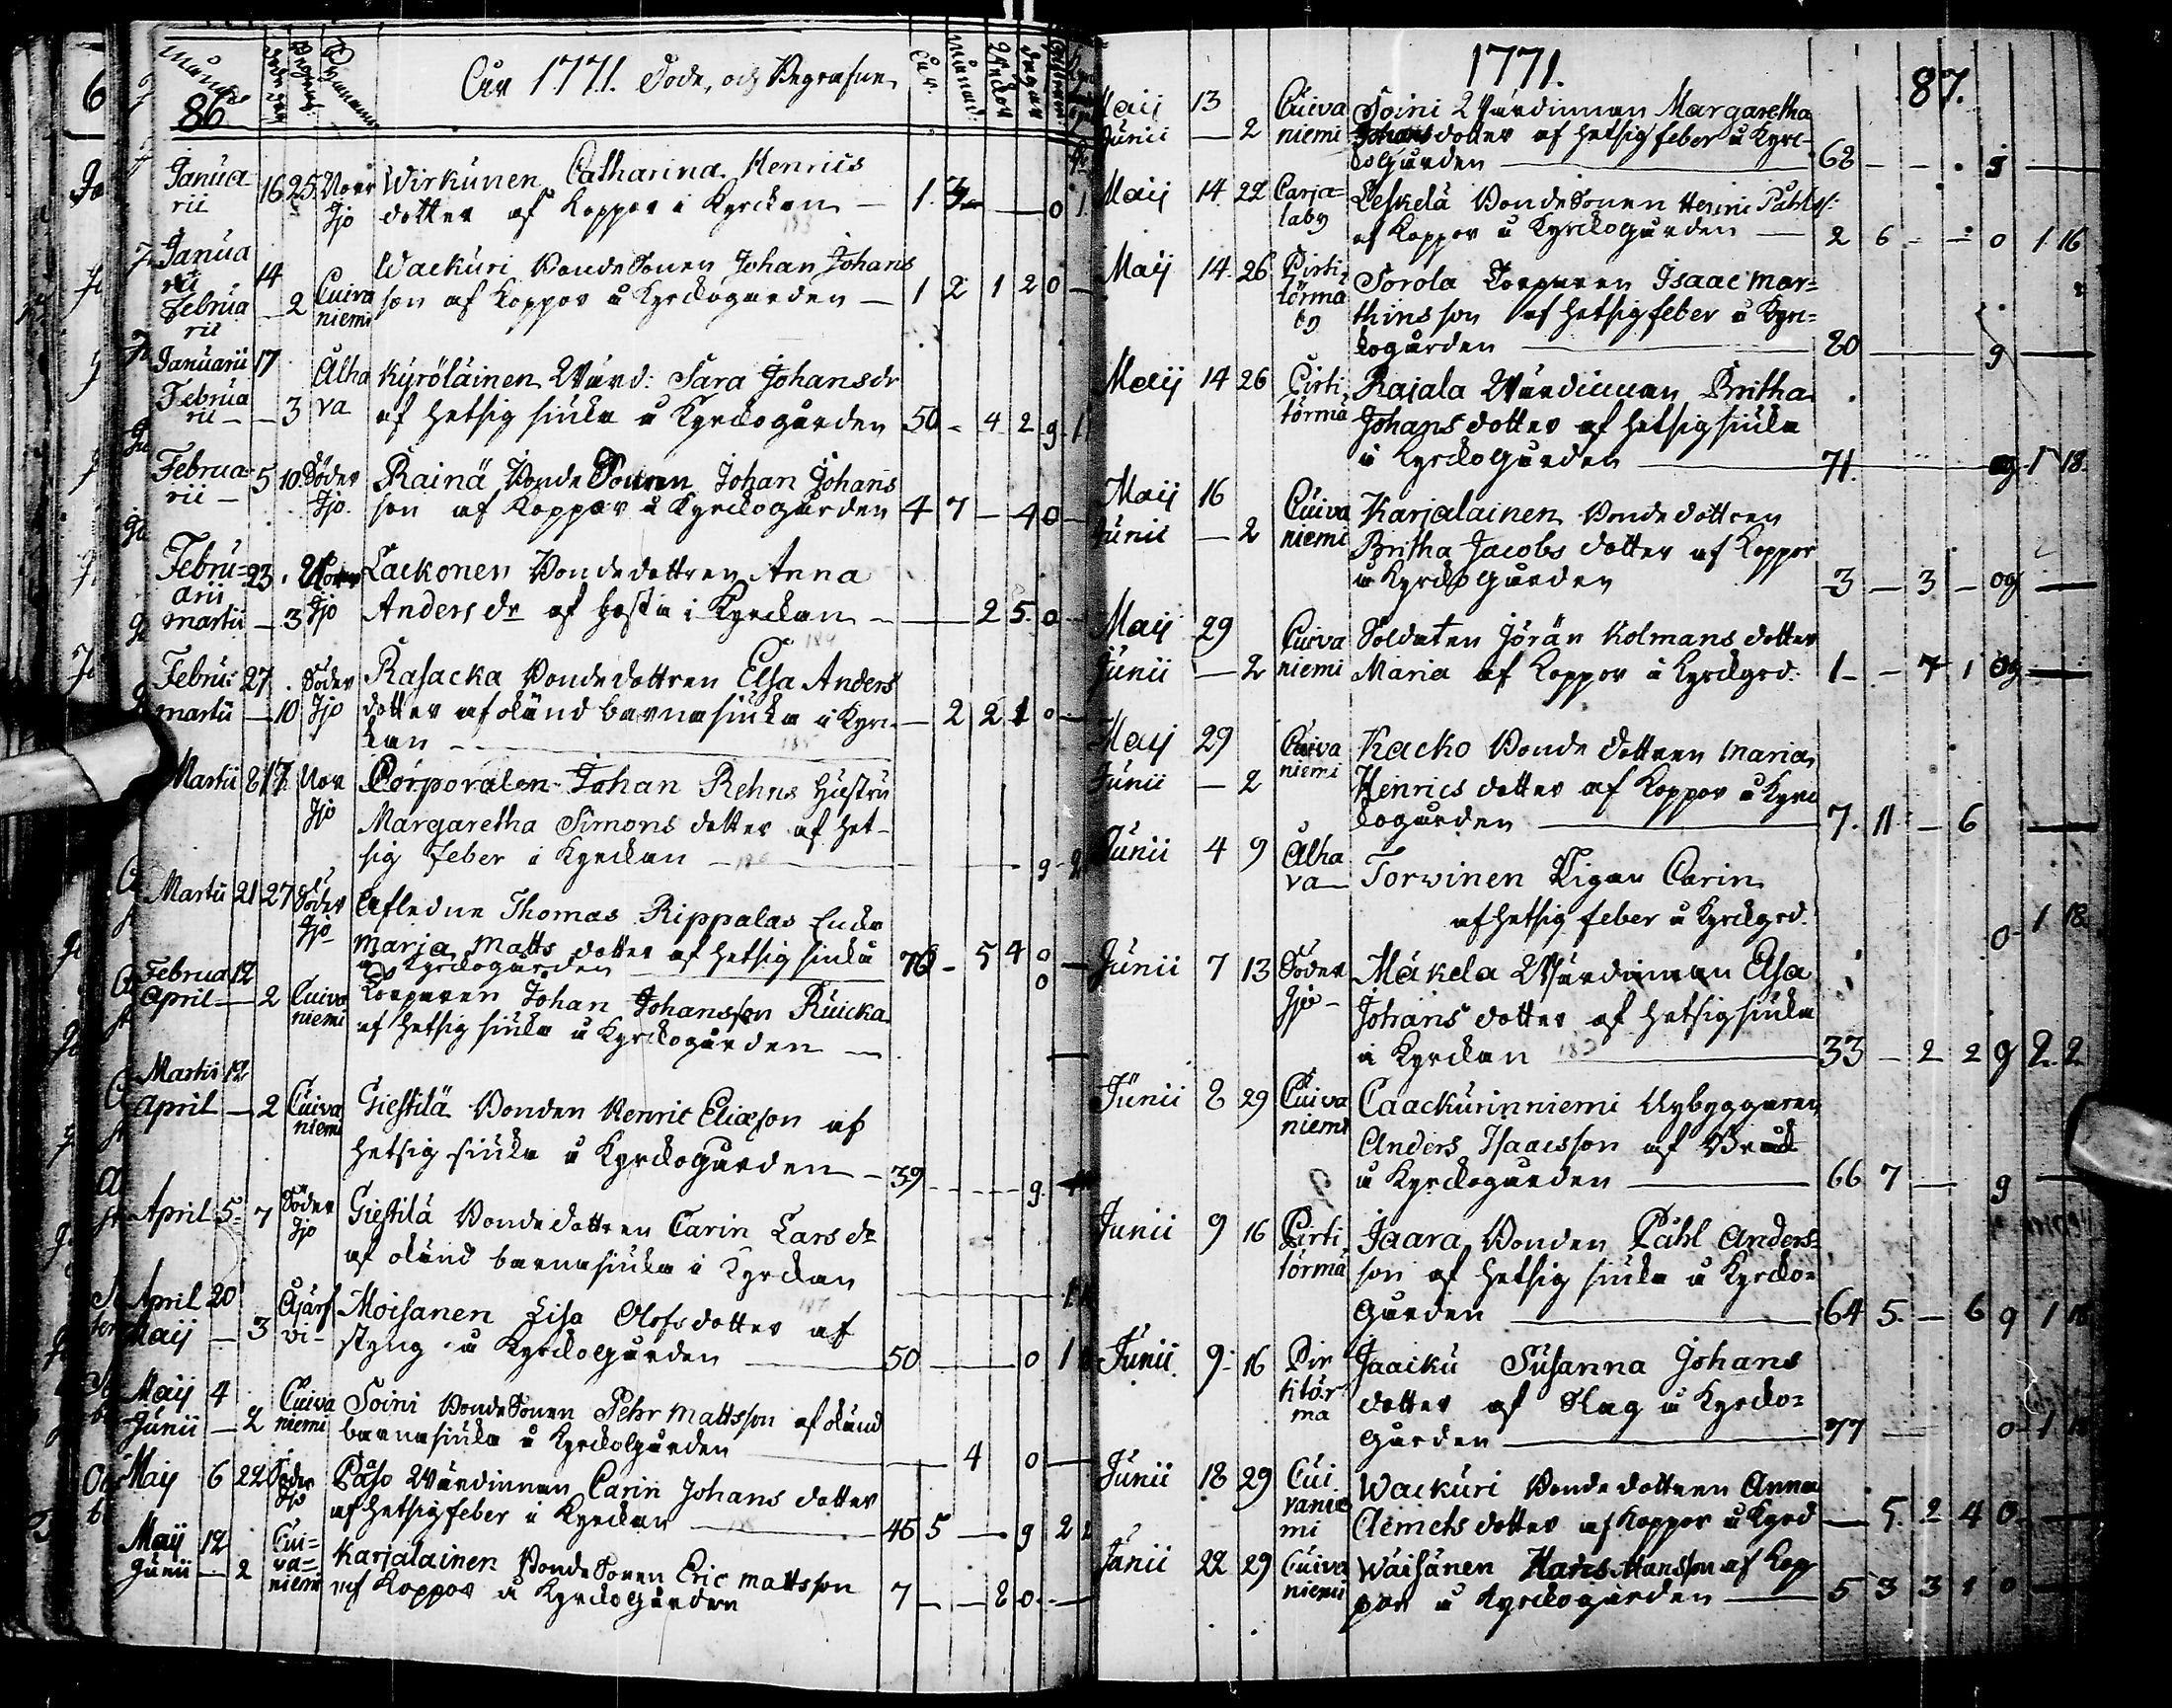 86
Månad
Åhr 1771. Döde, och Begrafne
Januarii 16 25. Norr Ijo Wirkunen Catharina Henrics
dotter af Koppor i Kyrckan — 1. 0 1.
Januarii 14
Februarii — 2 Cuivaniemi Wackuri Bonde Sonen Johan Johans
son af Koppor å Kyrckogården — 1 2 1 2 0 —
Januarii 17
Februarii — 3 Alhava Kyröläinen Wärd: Sara Johansdr
af hetsig siuka å Kyrckogården 50 - 4 2 g. 1
Februarii — 5 10 Söder Ijo. Rainä Bonde Sonen Johan Johans
son af Koppor å Kyrckogården 4 7 — 4 0 —
Februarii 23.
Martii — 3 Ijo Lackonen Bondedottren Anna
Anders dr af hosta i Kyrckan — 2 5. 0
Febru: 27.
Martii — 10 Söder Ijo Rasacka Bondedottren Elsa Anders
dotter af okänd barnasiuka i Kyrc- — 2 2 1 0
kan —
Martii 8 17. Nor Ijo Corporalen Johan Rehns Hustru
Margaretha Simons dotter af het-
sig feber i Kyrckan — g - 2
Martii 21 27 Söder Ijo Afledne Thomas Rippalas Enka
Marja Matts dotter af hetsig siuka 76 - 5 4 0
å Kyrckogården
Februa 12
April — 2 Cuivaniemi Torparen Johan Johansson Ruicka
af hetsig siuka å Kyrckogården —
Martii 12
April — 2 Cuivaniemi Giestilä Bonden Henric Eliæson af
hetsig siuka å Kyrckogården — 39 g.
April 5. 7 Söder Ijo Giestilä Bondedottren Carin Lars dr
af okänd barnasiuka i Kyrckan
April 20
Maij — 3 Ajärfvi Moisanen Lisa Olofsdotter af
styng å Kyrckogården — 50 — 0 1
Maij 4
Junii — 2 Cuivaniemi Soini Bonde Sonen Pehr Mattsson af okänd
barnasiuka å Kyrckogården — 4 0 —
Maij 6 22 Söder Ijo Påso Wärdinnan Carin Johans dotter
af hetsig feber i Kyrckan — 45 5 — g 2
Maij 12
Junii — 2 Cuivaniemi Karjalainen Bonde Sonen Eric Mattsson
af Koppor å Kyrckogården 7 — — 8 0. —
1771.
87.
Maij 13
Junii — 2 Cuivaniemi Soini Wärdinnan Margaretha
Johans dotter af hetsig feber å Kyrc-
kogården — 68 — — g —
Maij 14. 22 Carjalaby Leskelä Bonde Sonen Henric Påhls s:
af Koppor å Kyrckogården — 2 6 - — 0 1 16
Maij 14. 26 Pirtitörmä by Sorola Torparen Isaac Mar-
thinsson af hetsig feber å Kyrc-
kogården — 80 — g —
Maij 14 26 Pirtitörmä Rajala Wärdinnan Britha
Johans dotter af hetsig siuka
å Kyrckogården — 71. g 1 18.
Maij 16
Junii — 2 Cuivaniemi Karjalainen Bondedottren
Britha Jacobs dotter af Koppor
å Kyrckogården 3 — 3 — og —
Maij 29
Junii — 2 Cuivaniemi Soldaten Jöran Kolmans dotter
Maria af Koppor å Kyrckgrd. 1 — 7 1 og —
Maij 29
Junii — 2 Cuivaniemi Kacko Bonde dottren Maria
Henrics dotter af Koppor å Kyrc
kogården — 7. 11 — 6 —
Junii 4 9 Alhava — Torwinen Pigan Carin
af hetsig feber å Kyrckgrd. 0 - 1 18
Junii 7 13 Söder Ijo — Mäkelä Wärdinnan Elsa
Johans dotter af hetsig siuka
i Kyrckan — 33 — 2 2 g 2. 2
Junii 8 29 Cuivaniemi Caackurinniemi Nybyggaren
Anders Isaacsson af
å Kyrckogården — 66 7 — g —
Junii 9 16 Pirtitörmä Jaara Bonden Påhl Anders-
son af hetsig siuka å Kyrcko-
gården — 64 5. — 6 g 1 18
Junii 9 - 16 Pirtitörmä Jaacku Susanna Johans
dotter af Slag å Kyrcko-
gården — 77 — 0 - 1 18
Junii 18 29 Cuivaniemi Wackuri Bonde dottren Anna
Clemets dotter af Koppor å Kyrd — 5. 2 4 0. —
Junii 22 29 Cuivaniemi Wäisänen Hans Hansson af Kop
por å Kyrckogården — 5 3 3 1 0 —